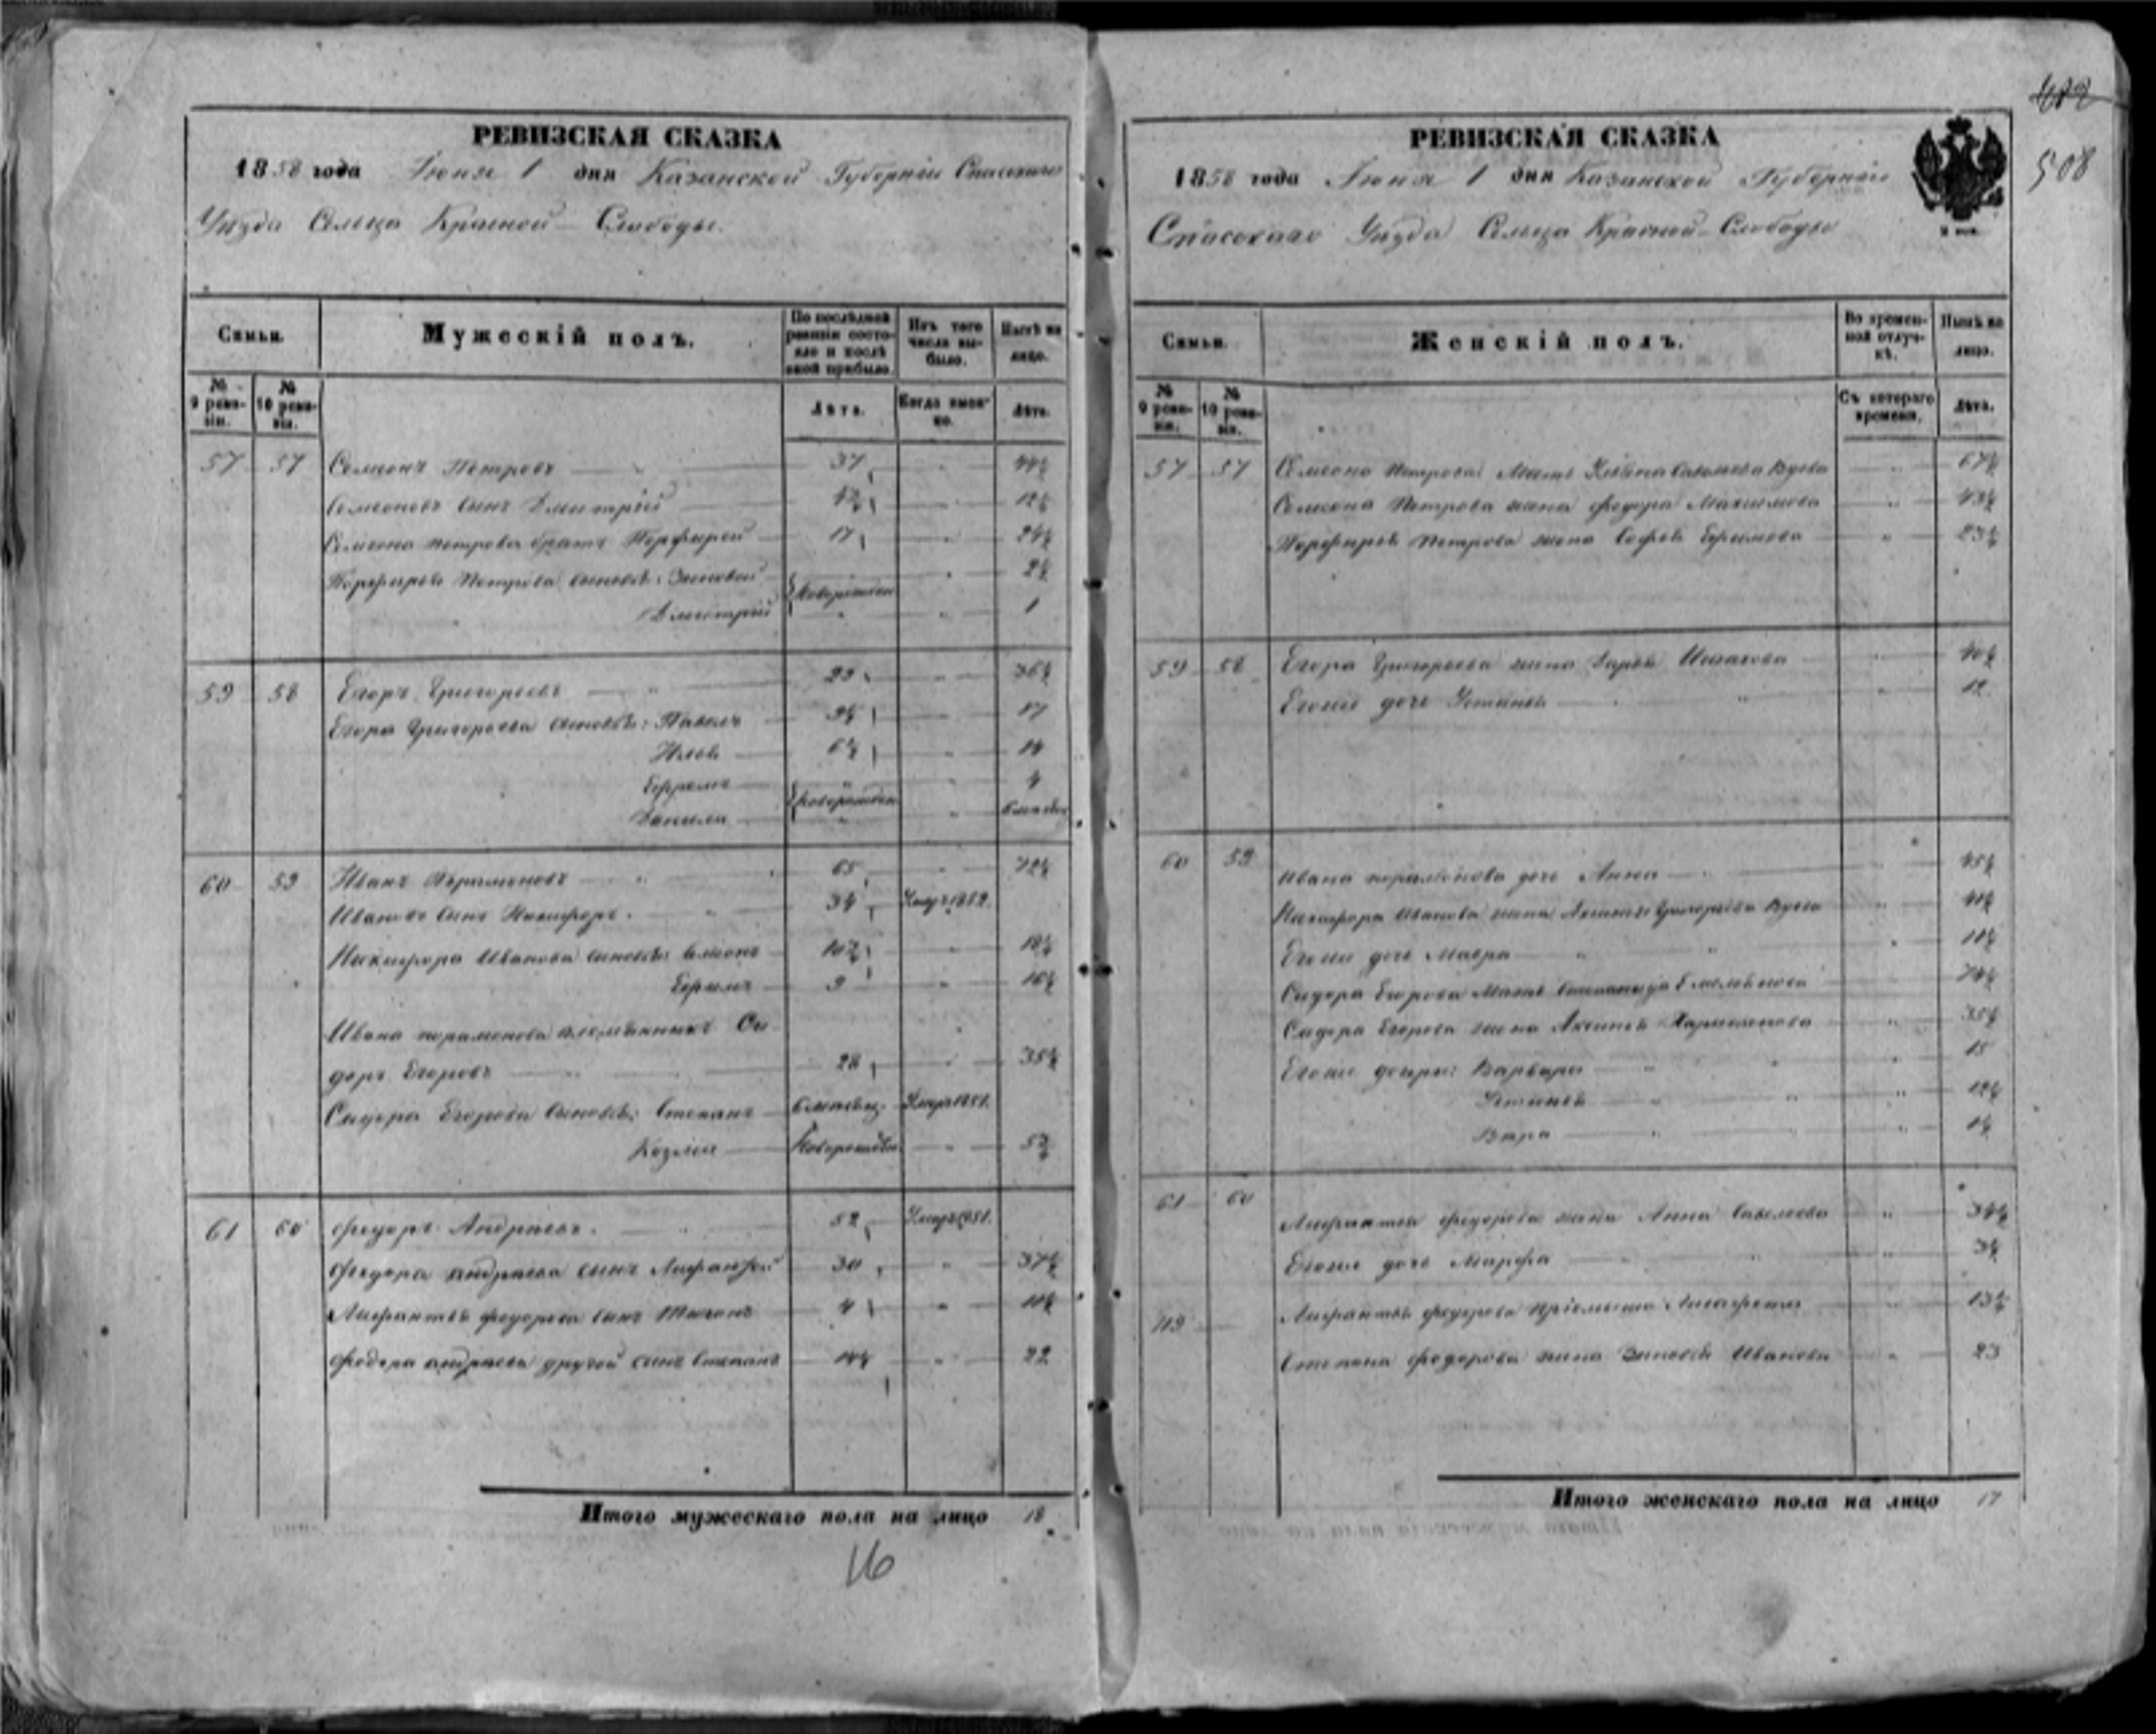 РЕВИЗСКАЯ СКАЗКА
1858 года Іюня 1 дня Казанской Губерніи Спасскаго
Уѣзда Сельца Красной-Слободы.
Семьи.
Мужескій полъ.
По послѣдней ревизіи состояло и послѣ оной прибыло.
Изъ того числа выбыло.
Нынѣ на лицо.
№ 9 ревизіи.
№ 10 ревизіи.
Лѣта.
Когда именно.
Лѣта.
57 57 Семионъ Петровъ 37 44½
Семионовъ сынъ Дмитрій 12½
Семиона Петрова братъ Порфирей 17 24½
Порфирья Петрова сыновья: Зиновей новорожден 2½
Дмитрій 1
59 58 Егоръ Григорьевъ 29 36½
Егора Григорьева сыновья: Павелъ 9½ 17
Илья 6½ 14
Ефремъ новорожден 4
Данила
60 59 Иванъ Парамоновъ 65 72½
Ивановъ сынъ Никифоръ. 34 Умеръ 1852.
Никифора Иванова сыновья: 18½
Ефимъ 9 16½
Ивана Парамонова племянникъ Си-
доръ Егоровъ 28 35½
Сидора Егорова сыновья: Степанъ Умеръ 1851.
Козма новорожден
61 60 Федоръ Андреевъ. 52 Умеръ 1851.
Федора Андреева сынъ Лифантей 30 37½
Лифантья Федорова сынъ 4 11½
Федора Андреева другой сынъ Степанъ 14½ 22
Итого мужескаго пола на лицо 18
16
РЕВИЗСКАЯ СКАЗКА
1858 года Іюня 1 дня Казанской Губерніи
Спасскаго Уѣзда Сельца Красной-Слободы
508
Семьи.
Женскій полъ.
Во временной отлучкѣ.
Нынѣ на лицо.
№ 9 ревизіи.
№ 10 ревизіи.
Съ котораго времени.
Лѣта.
57 57 Семиона Петрова Мать Савельева Вдова 67½
Семиона Петрова жена Федора Максимова 43½
Порфирья Петрова жена Софья Ефимова 23½
59 58 Егора Григорьева жена Дарья 40½
Егоже дочь Устинья 12
60 59 Ивана Парамонова дочь Анна 45½
Никифора Иванова жена Аксинья Григорьева Вдова 41½
Егоже дочь Мавра 11½
Сидора Егорова Мать Степанида Емельянова 74½
Сидора Егорова жена Аксинья Харитонова 35½
Егоже дочери: Варвара 15
Устинья 12½
Вѣра 1½
61 60 Лифантья Федорова жена Анна Савельева 34½
Егоже дочь Марфа 3½
119 Лифантья Федорова пріемышка 13½
Степана Федорова жена Зиновья Иванова 23
Итого женскаго пола на лицо 17